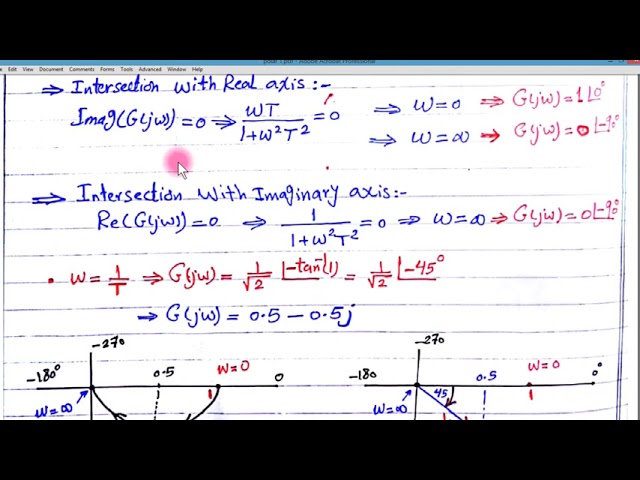 polar 1.pdf - Adobe Acrobat Professional
View Document Comments Forms Tools Advanced Window Help
⇒ Intersection with Real axis :-
Imag(G(jω)) = 0 ⇒ ωT / 1+ω²T² = 0 ⇒ ω=0 ⇒ G(jω)=1∠0°
⇒ ω=∞ → G(jω)=0∠-90°
⇒ Intersection with Imaginary axis:-
Re(G(jω))=0 ⇒ 1 / 1+ω²T² = 0 ⇒ ω=∞ ⇒ G(jω)=0∠-90°
• ω = 1/T ⇒ G(jω) = 1/√2 ∠-tan⁻¹(1) = 1/√2 ∠-45°
⇒ G(jω) = 0.5 - 0.5j
-270 -270
-180° 0.5 ω=0 0 -180 0.5 ω=0 0°
ω=∞ 1 ω=∞ 45 1